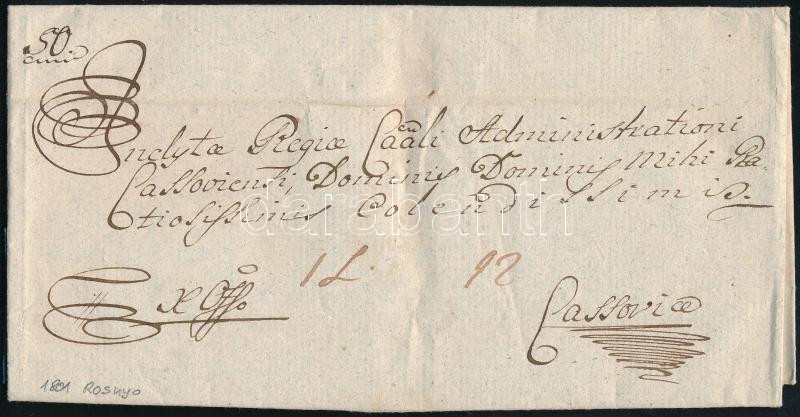 50
Inclytæ Regiæ Caali Administrationi
Cassoviensi, Dominis Dominis Mihi Gra-
tiosissimis Colendissimis.
darabanth
Ex Offo
1 L. 12
Cassoviæ
1801 Rosnyo